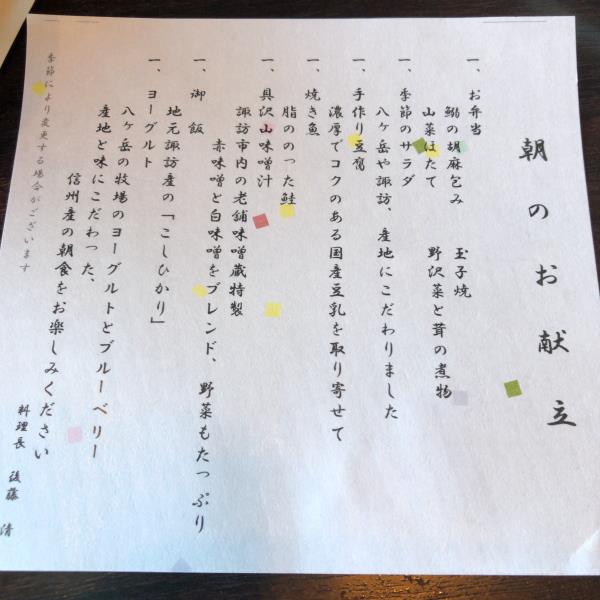 朝のお献立
一、お弁当
鰯の胡麻包み　玉子焼
山菜ほたて　野沢菜と茸の煮物
一、季節のサラダ
八ヶ岳や諏訪、産地にこだわりました
一、手作り豆腐
濃厚でコクのある国産豆乳を取り寄せて
一、焼き魚
脂ののった鮭
一、具沢山味噌汁
諏訪市内の老舗味噌蔵特製
赤味噌と白味噌をブレンド、野菜もたっぷり
一、御飯
地元諏訪産の「こしひかり」
一、ヨーグルト
八ヶ岳の牧場のヨーグルトとブルーベリー
産地と味にこだわった、
信州産の朝食をお楽しみください
料理長　後藤　清
季節により変更する場合がございます